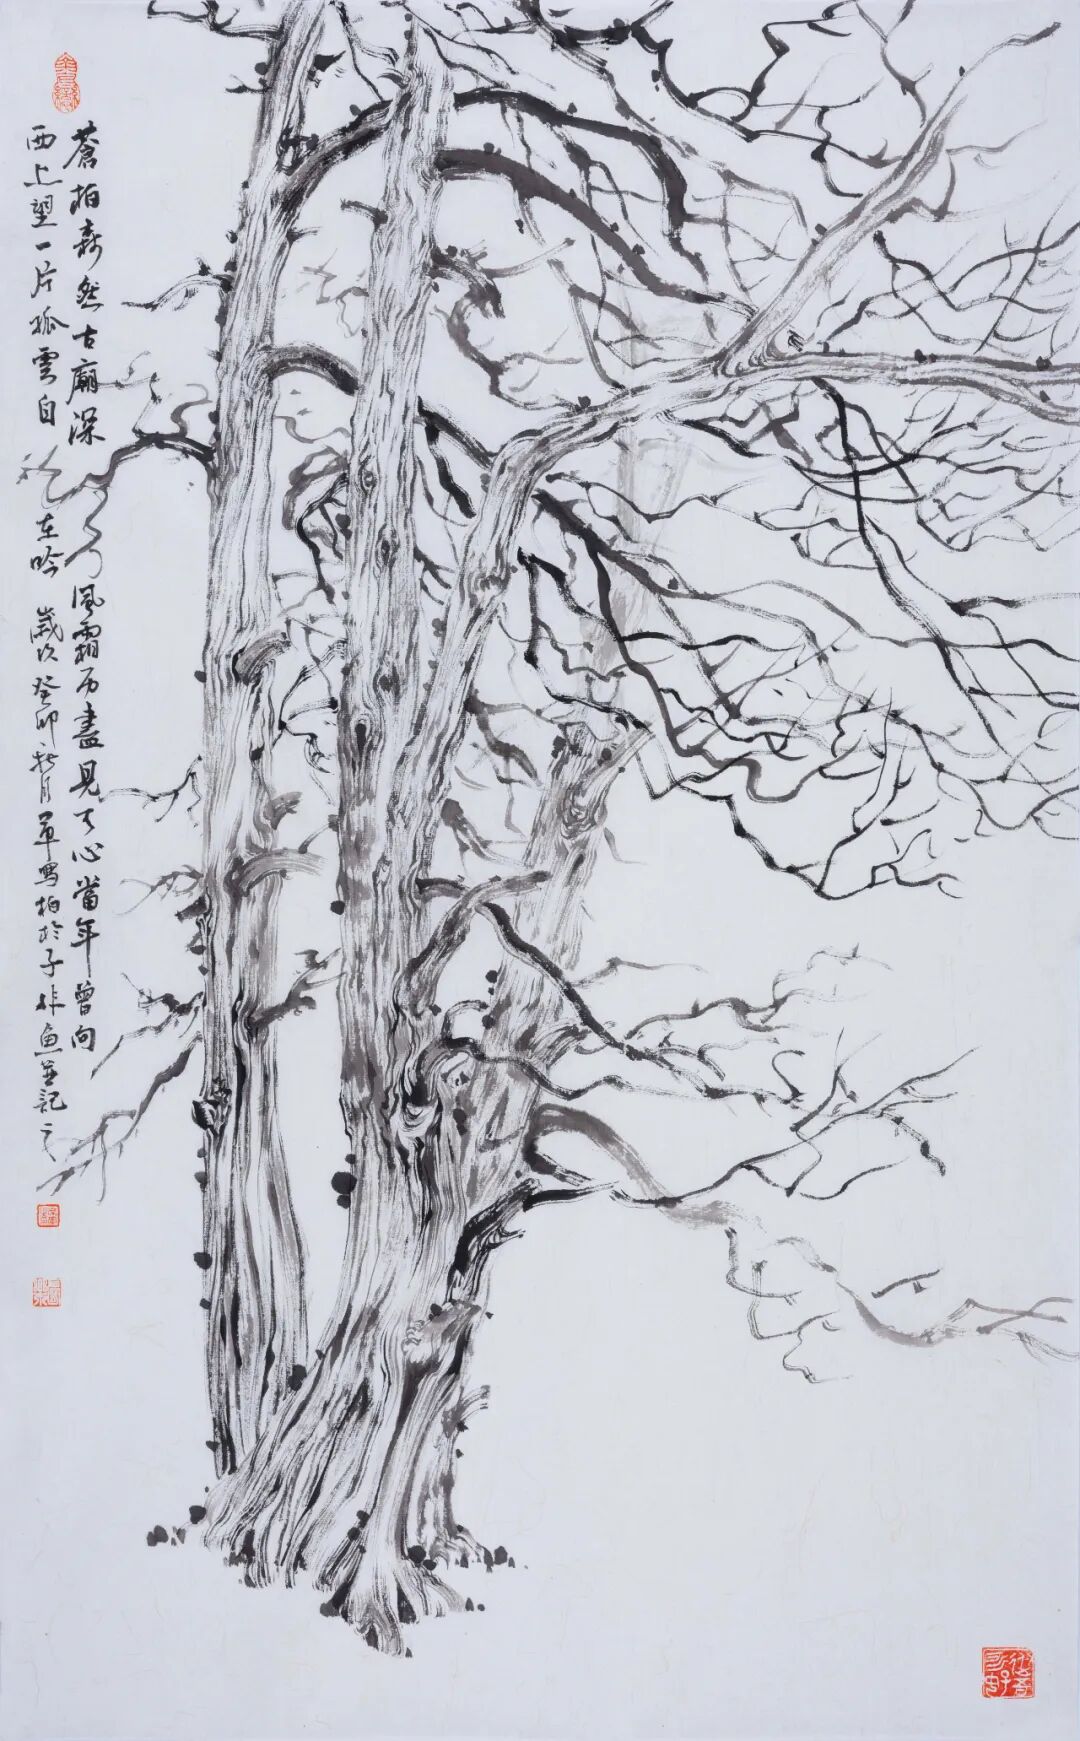 蒼柏森然古廟深風霜历盡見天心當年曾向
西上望一片孤雲自在吟 歲次癸卯秋月軍寫柏於子非魚並記之